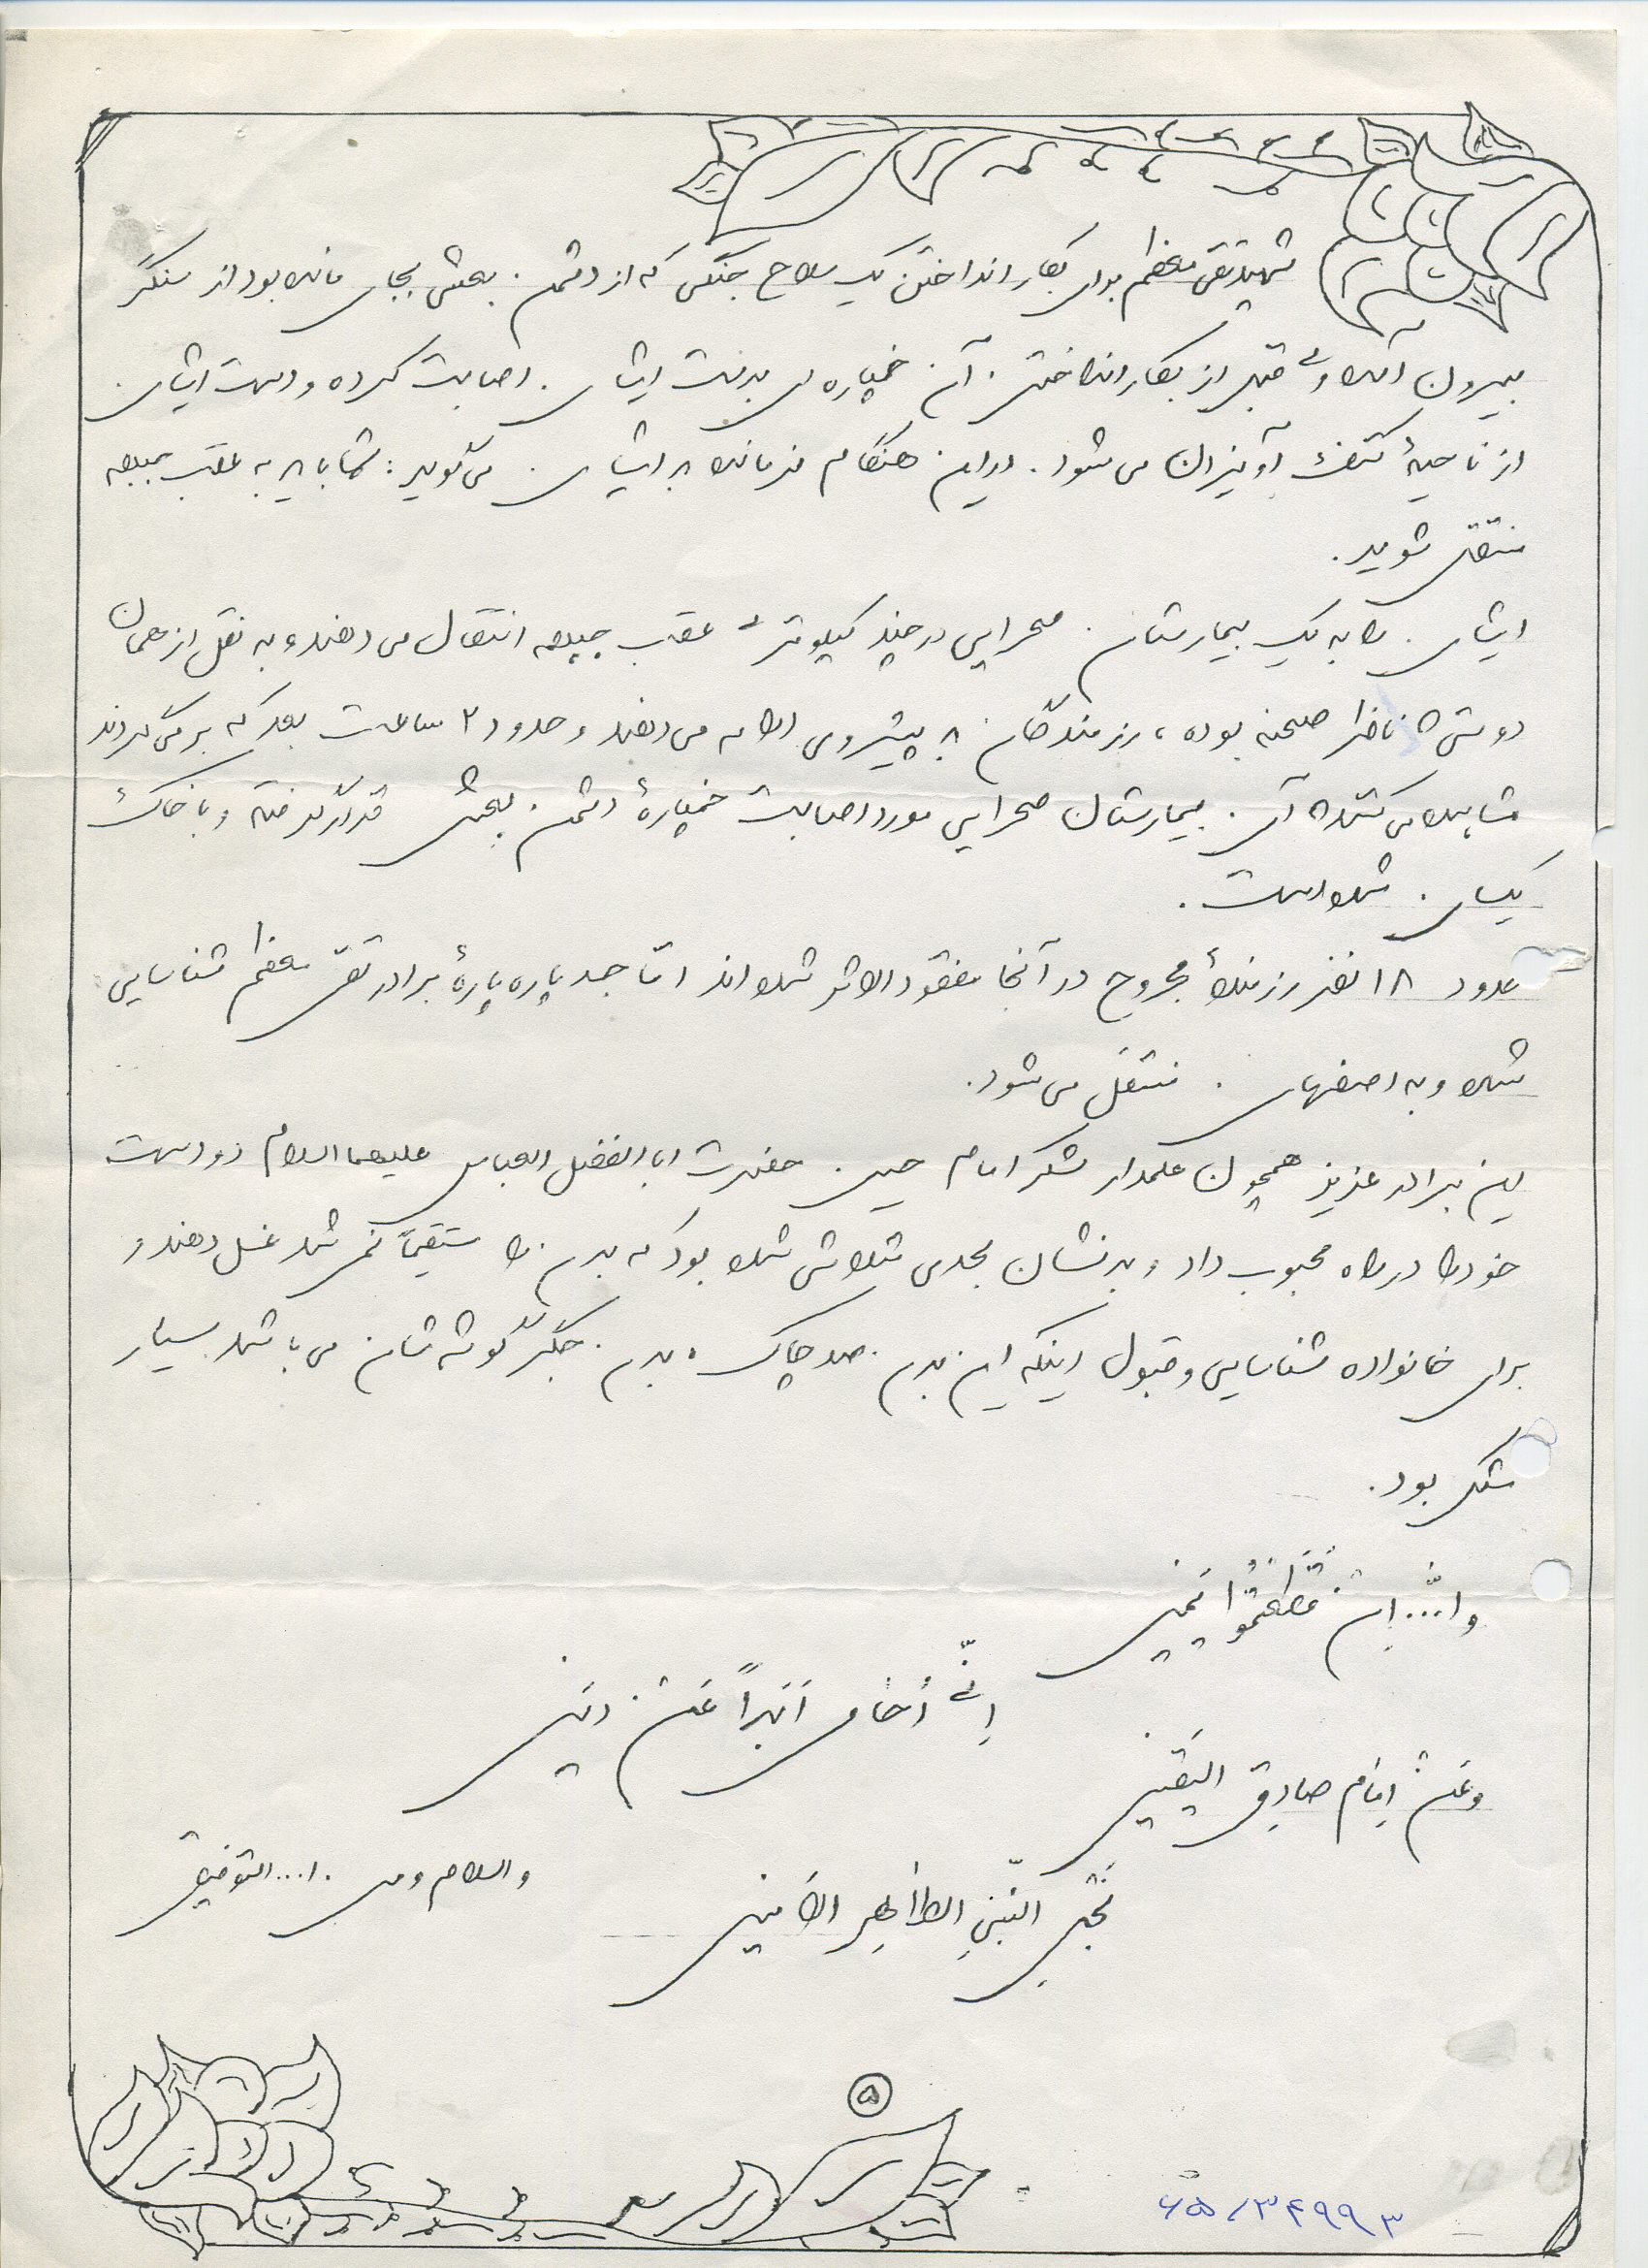 شهید تقی معظم برای بکار انداختن یک سلاح جنگی که از دشمن بعثی بجای مانده بود از سنگر
بیرون آمده ولی قبل از بکار انداختن آن خمپاره‌ای بدست ایشان اصابت کرده و دست ایشان
از ناحیهٔ کتف آویزان می‌شود. در این هنگام فرمانده به ایشان می‌گوید: شما باید به عقب جبهه
منتقل شوید.
ایشان را به یک بیمارستان صحرایی در چند کیلومتری عقب جبهه انتقال می‌دهند و به نقل از همان
دوستش که ناظر صحنه بوده، رزمندگان به پیشروی ادامه می‌دهند و حدود ۲ ساعت بعد که برمی‌گردند
مشاهده می‌کنند که آن بیمارستان صحرایی مورد اصابت خمپارهٔ دشمن بعثی قرار گرفته و با خاک
یکسان شده است.
حدود ۱۸ نفر رزمندهٔ مجروح در آنجا مفقودالاثر شده‌اند امّا جسد پاره پارهٔ برادر تقی معظم شناسایی
شده و به اصفهان منتقل می‌شود.
این برادر عزیز همچون علمدار لشکر امام حسین حضرت اباالفضل العباس علیهما السلام دو دست
خود را در راه محبوب داد و بدنشان بحدی متلاشی شده بود که بدن را مستقیماً نمی‌شد غسل دهند و
برای خانواده شناسایی و قبول اینکه این بدن صد چاک، بدن جگرگوشه‌شان می‌باشد بسیار
مشکل بود.
وا... اِن قَطَعتُمُوا یَمینی
اِنّی اُحامی اَبَداً عَن دینی
وَعَن اِمامٍ صادِقِ الیَقینِ
نَجلِ النَّبیِ الطاهِرِ الاَمینِ
والسلام و من ا... التوفیق
۵
۶۵/۳۴۹۹۳